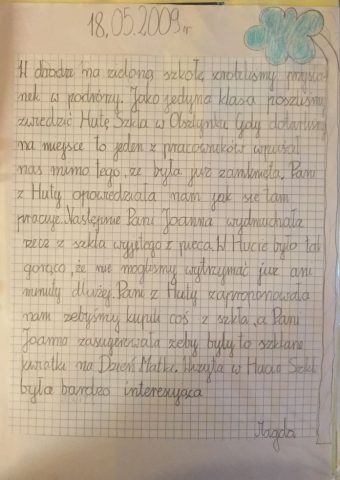 18.05.2009r
W drodze na zieloną szkołę zrobiliśmy przysta-
nek w podróży. Jako jedyna klasa poszliśmy
zwiedzić Hutę Szkła w Olsztynku. Gdy dotarliśmy
na miejsce to jeden z pracowników wpuścił
nas mimo tego, że była już zamknięta. Pani
z Huty opowiedziała nam jak się tam
pracuje. Następnie Pani Joanna wydmuchała
rzecz z szkła wyjętego z pieca. W Hucie było tak
gorąco, że nie mogliśmy wytrzymać już ani
minuty dłużej. Pani z Huty zaproponowała
nam żebyśmy kupili coś z szkła, a Pani
Joanna zasugerowała żeby były to szklane
kwiatki na Dzień Matki. Wizyta w Hucie Szkł
była bardzo interesująca
Magda